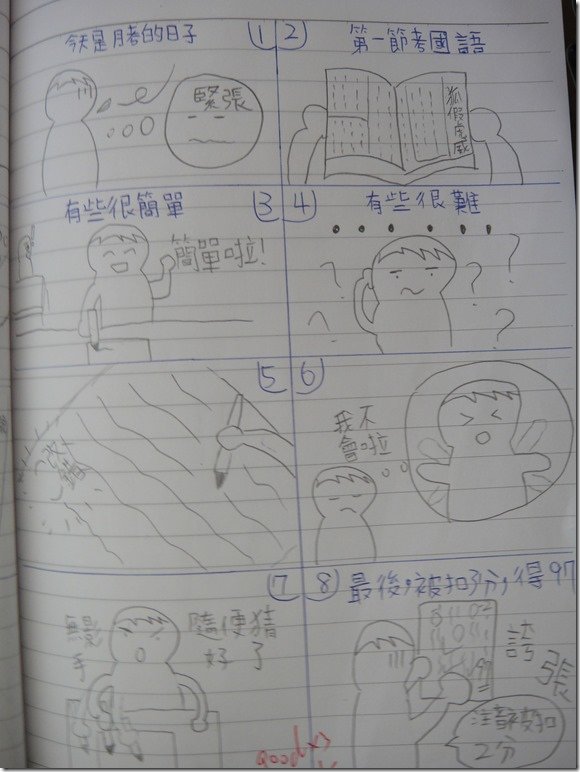 今天是月考的日子 1
緊張
2 第一節考國語
狐假虎威
有些很簡單 3
簡單啦!
4 有些很難
? ? ? ? ?
5
6
我不
會啦
7
無影手
隨便猜
好了
8 最後,被扣3分,得97
97
誇張
注音被扣
2分
good